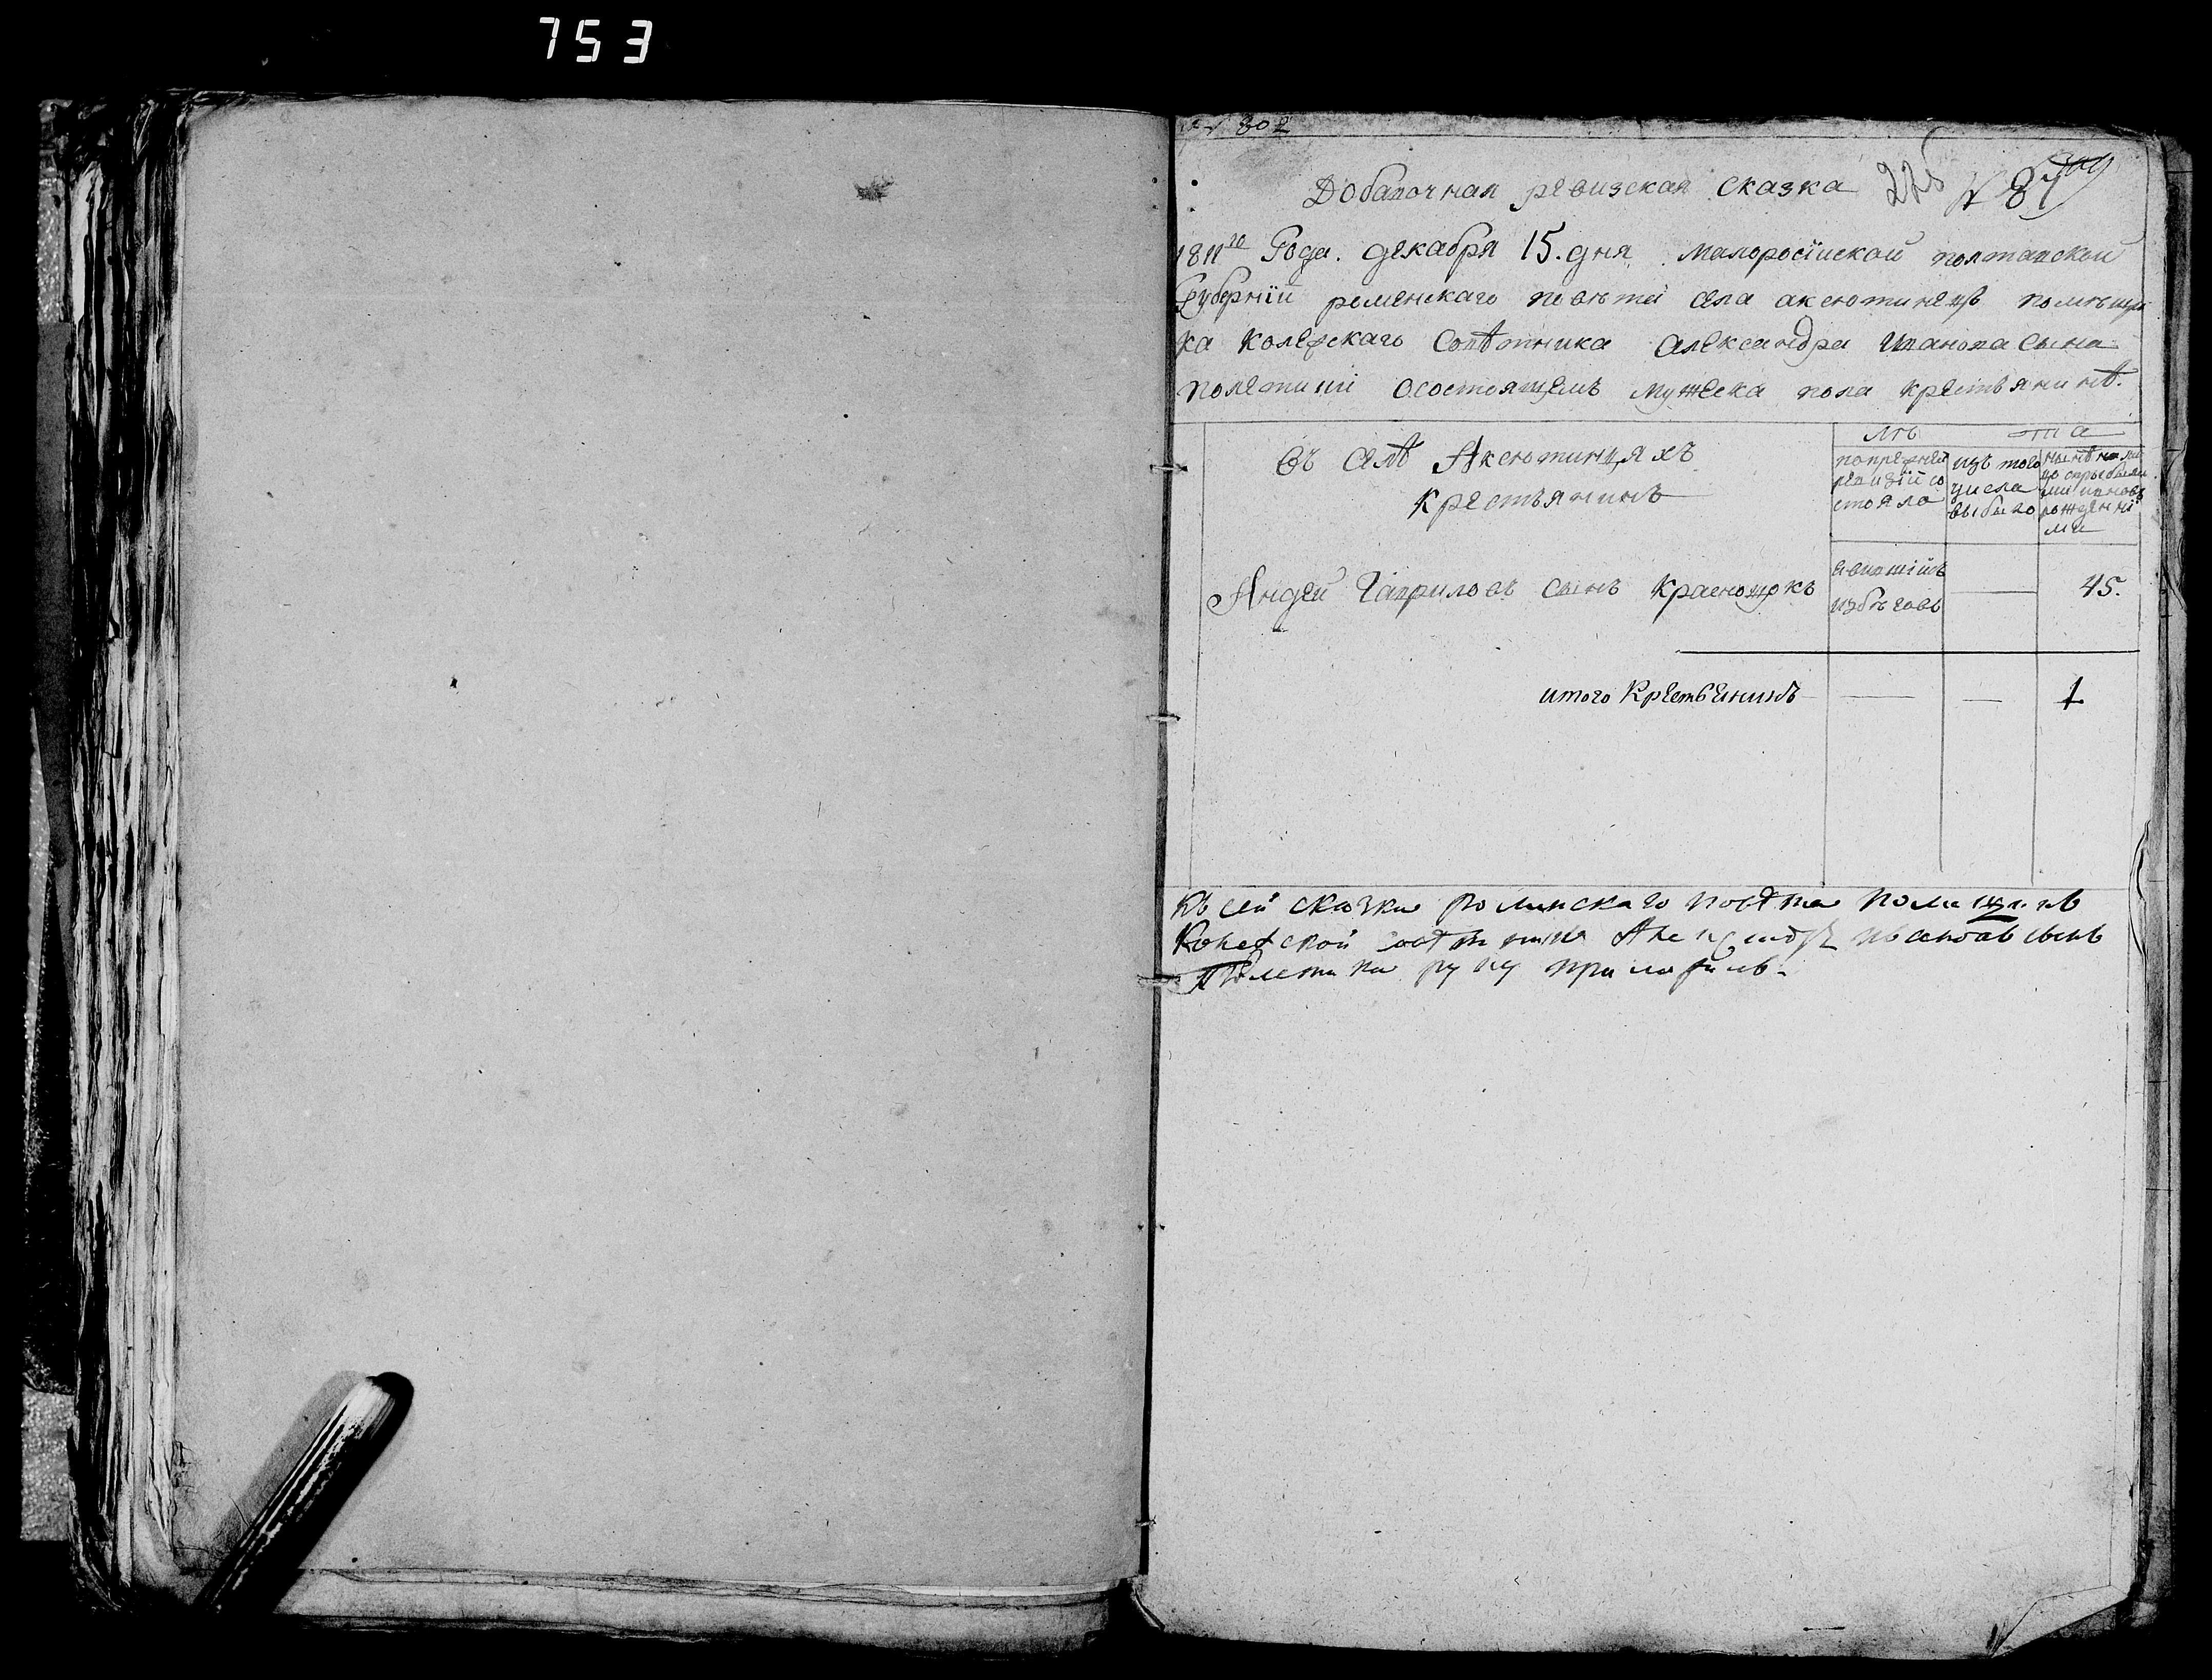 753
№ 802
Добавочная ревизская сказка 226 № 87
1811го Года. декабря 15. дня Малоросїйской полтавской
Губернїи роменскаго повѣта села аксютинецъ помѣщи
ка колежскаго Совѣтника Александра Иванова сына
полетики о состоящемъ мужеска пола крестьянинѣ.
въ селѣ Аксютинцяхъ
крестьянинъ
лѣта
по прежней ревизїи со стояло
изъ того числа выбыло
нынѣ на лицо спрыбылыми и новорожденными
Андрей Гавриловъ сынъ Краснощокъ явившїйсь избѣговъ — 45.
итого Крестьянинъ — — 1
Къ сей сказки роминскаго повѣта помещикъ
Колежской совѣтникъ Александръ Ивановъ сынъ
Полетика руку приложилъ.